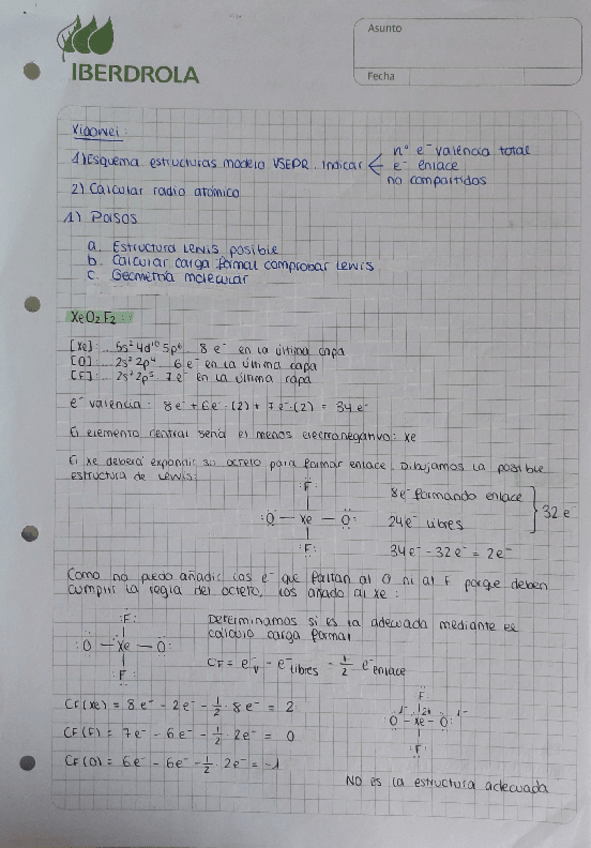 IBERDROLA
Asunto
Fecha
Xiaowei:
1) Esquema estructuras modelo VSEPR. Indicar < nº e⁻ valencia total
e⁻ enlace
no compartidos
2) Calcular radio atómico
1) Pasos
a. Estructura Lewis posible
b. Calcular carga formal comprobar Lewis
c. Geometría molecular
XeO₂F₂:
[Xe]: ... 5s² 4d¹⁰ 5p⁶ 8 e⁻ en la última capa
[O]: ... 2s² 2p⁴ 6 e⁻ en la última capa
[F]: ... 2s² 2p⁵ 7 e⁻ en la última capa
e⁻ valencia: 8e⁻ + 6e⁻·(2) + 7e⁻·(2) = 34 e⁻
El elemento central será el menos electronegativo: Xe
El Xe deberá expandir su octeto para formar enlace. Dibujamos la posible
estructura de Lewis:
:F:
:O — Xe — O:
:F:
8e⁻ formando enlace
24e⁻ libres
} 32 e⁻
34e⁻ - 32e⁻ = 2e⁻
Como no puedo añadir los e⁻ que faltan al O ni al F porque deben
cumplir la regla del octeto, los añado al Xe:
:F:
:O — Xe — O:
:F:
Determinamos si es la adecuada mediante el
cálculo carga formal
CF = e⁻v - e⁻libres - 1/2 e⁻enlace
CF(Xe) = 8e⁻ - 2e⁻ - 1/2 · 8e⁻ = 2
CF(F) = 7e⁻ - 6e⁻ - 1/2 · 2e⁻ = 0
CF(O) = 6e⁻ - 6e⁻ - 1/2 · 2e⁻ = -1
:F:
:O¹⁻ — Xe²⁺ — O:¹⁻
:F:
NO es la estructura adecuada